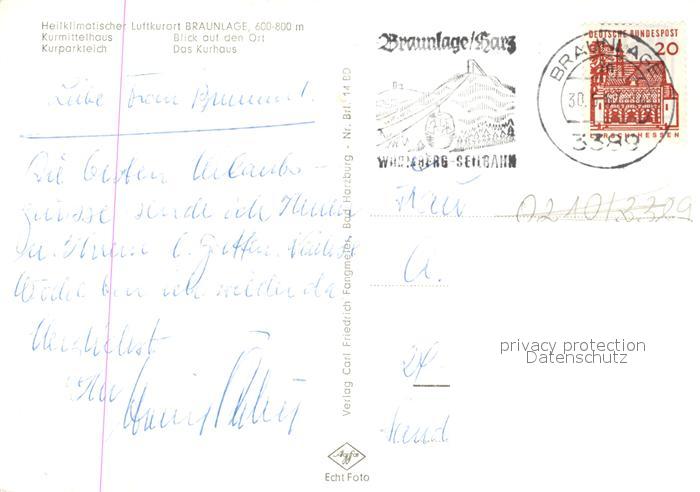 Heilklimatischer Luftkurort BRAUNLAGE, 600-800 m
Kurmittelhaus Blick auf den Ort
Kurparkteich Das Kurhaus
Liebe Frau
Die besten Urlaubs-
grüsse sende ich Ihnen
u. Ihrem l. Gatten. Nächste
Woche bin ich wieder da
Herzlichst
Ihr
Verlag Carl Friedrich Fangmeier, Bad Harzburg - Nr. Brl. 14 BD
Agfa
Echt Foto
Braunlage/Harz
WURMBERG-SEILBAHN
BRAUNLAGE
30.
3389
DEUTSCHE BUNDESPOST
20
LORSCH/HESSEN
Frau
0210/2329
privacy protection
Datenschutz